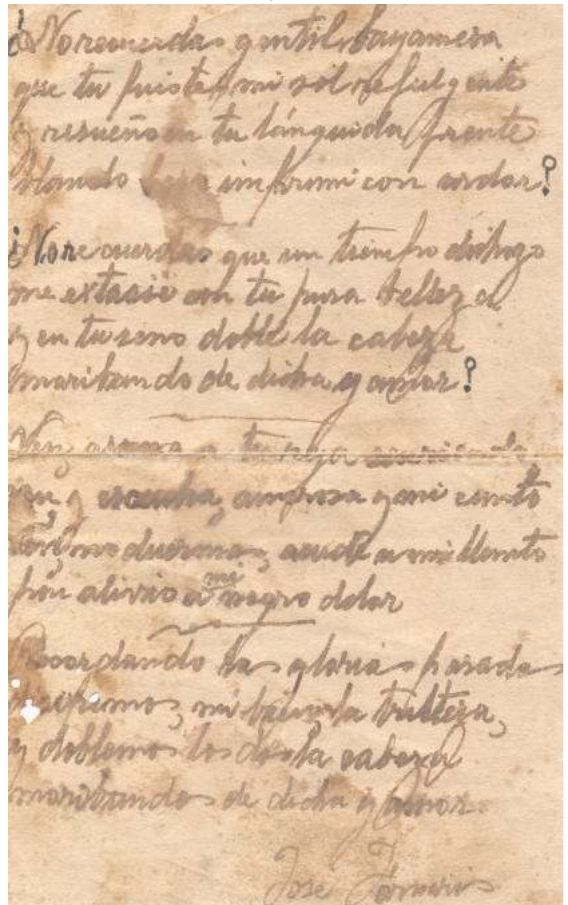 ¿No recuerdas gentil bayamesa
que tu fuiste mi sol refulgente
y risueño en tu lánguida frente
blando beso imprimi con ardor?
¿No recuerdas que un tiempo dichozo
me extasié con tu pura belleza
y en tu seno doblé la cabeza
moribundo de dicha y amor?
Ven, asoma a tu reja
ven, y escucha, amorosa mi canto
ven, no duermas, acude a mi llanto
pon alivio a mi negro dolor
Recordando las glorias pasadas
disipemos, mi bien, la tristeza,
y doblemos los dos la cabeza
moribundos de dicha y amor.
José Fornaris